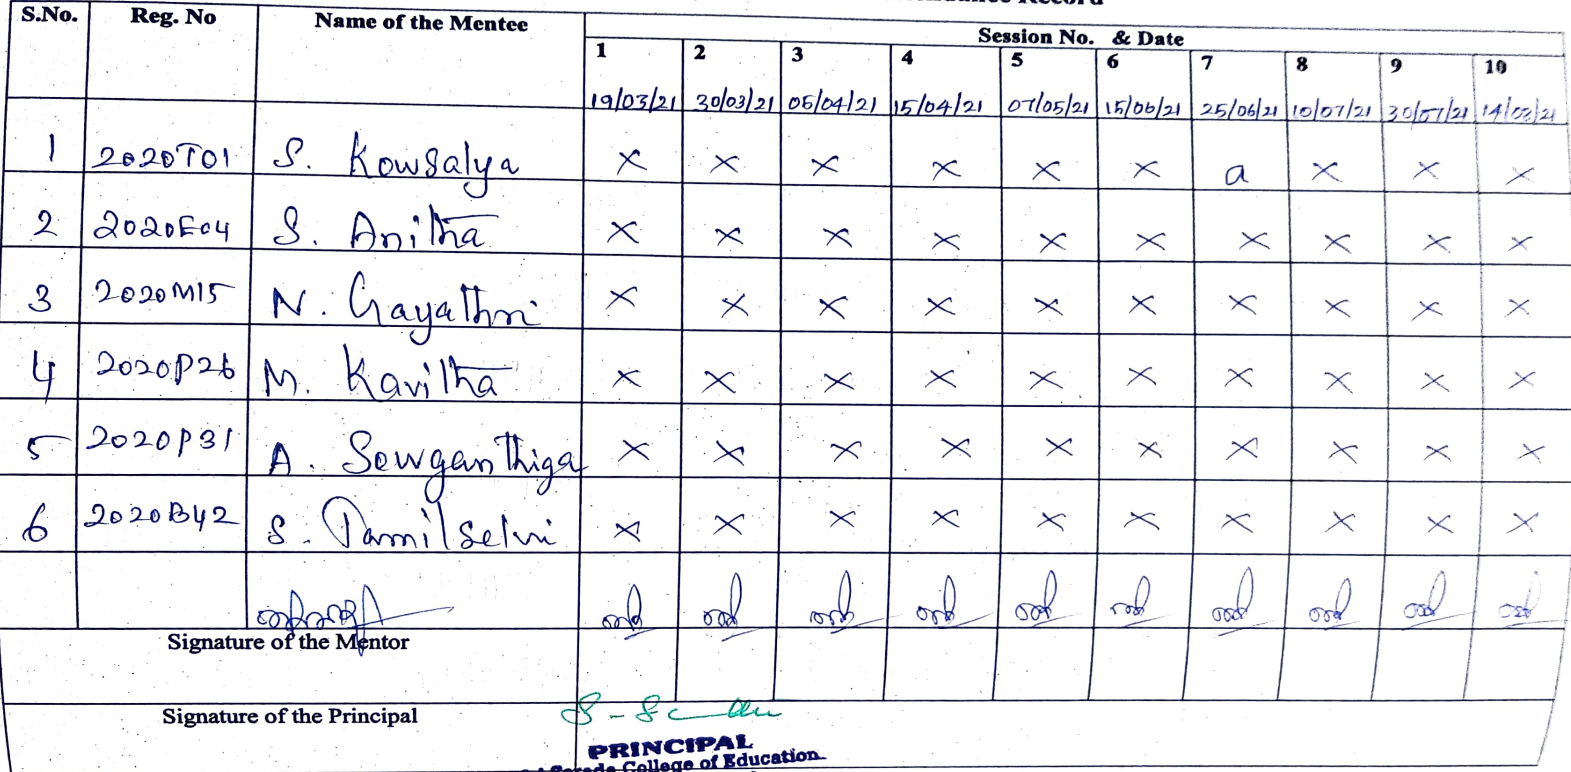 S.No. Reg. No Name of the Mentee Session No. & Date
1 2 3 4 5 6 7 8 9 10
19/03/21 30/03/21 05/04/21 15/04/21 07/05/21 15/06/21 25/06/21 10/07/21 30/07/21
1 2020T01 S. Kowsalya × × × × × × a × × ×
2 2020E04 S. Anitha × × × × × × × × × ×
3 2020M15 N. Gayathri × × × × × × × × × ×
4 2020P26 M. Kavitha × × × × × × × × × ×
5 2020P31 A. Sowganthiga × × × × × × × × × ×
6 2020B42 S. Tamilselvi × × × × × × × × × ×
Signature of the Mentor
Signature of the Principal
PRINCIPAL
College of Education